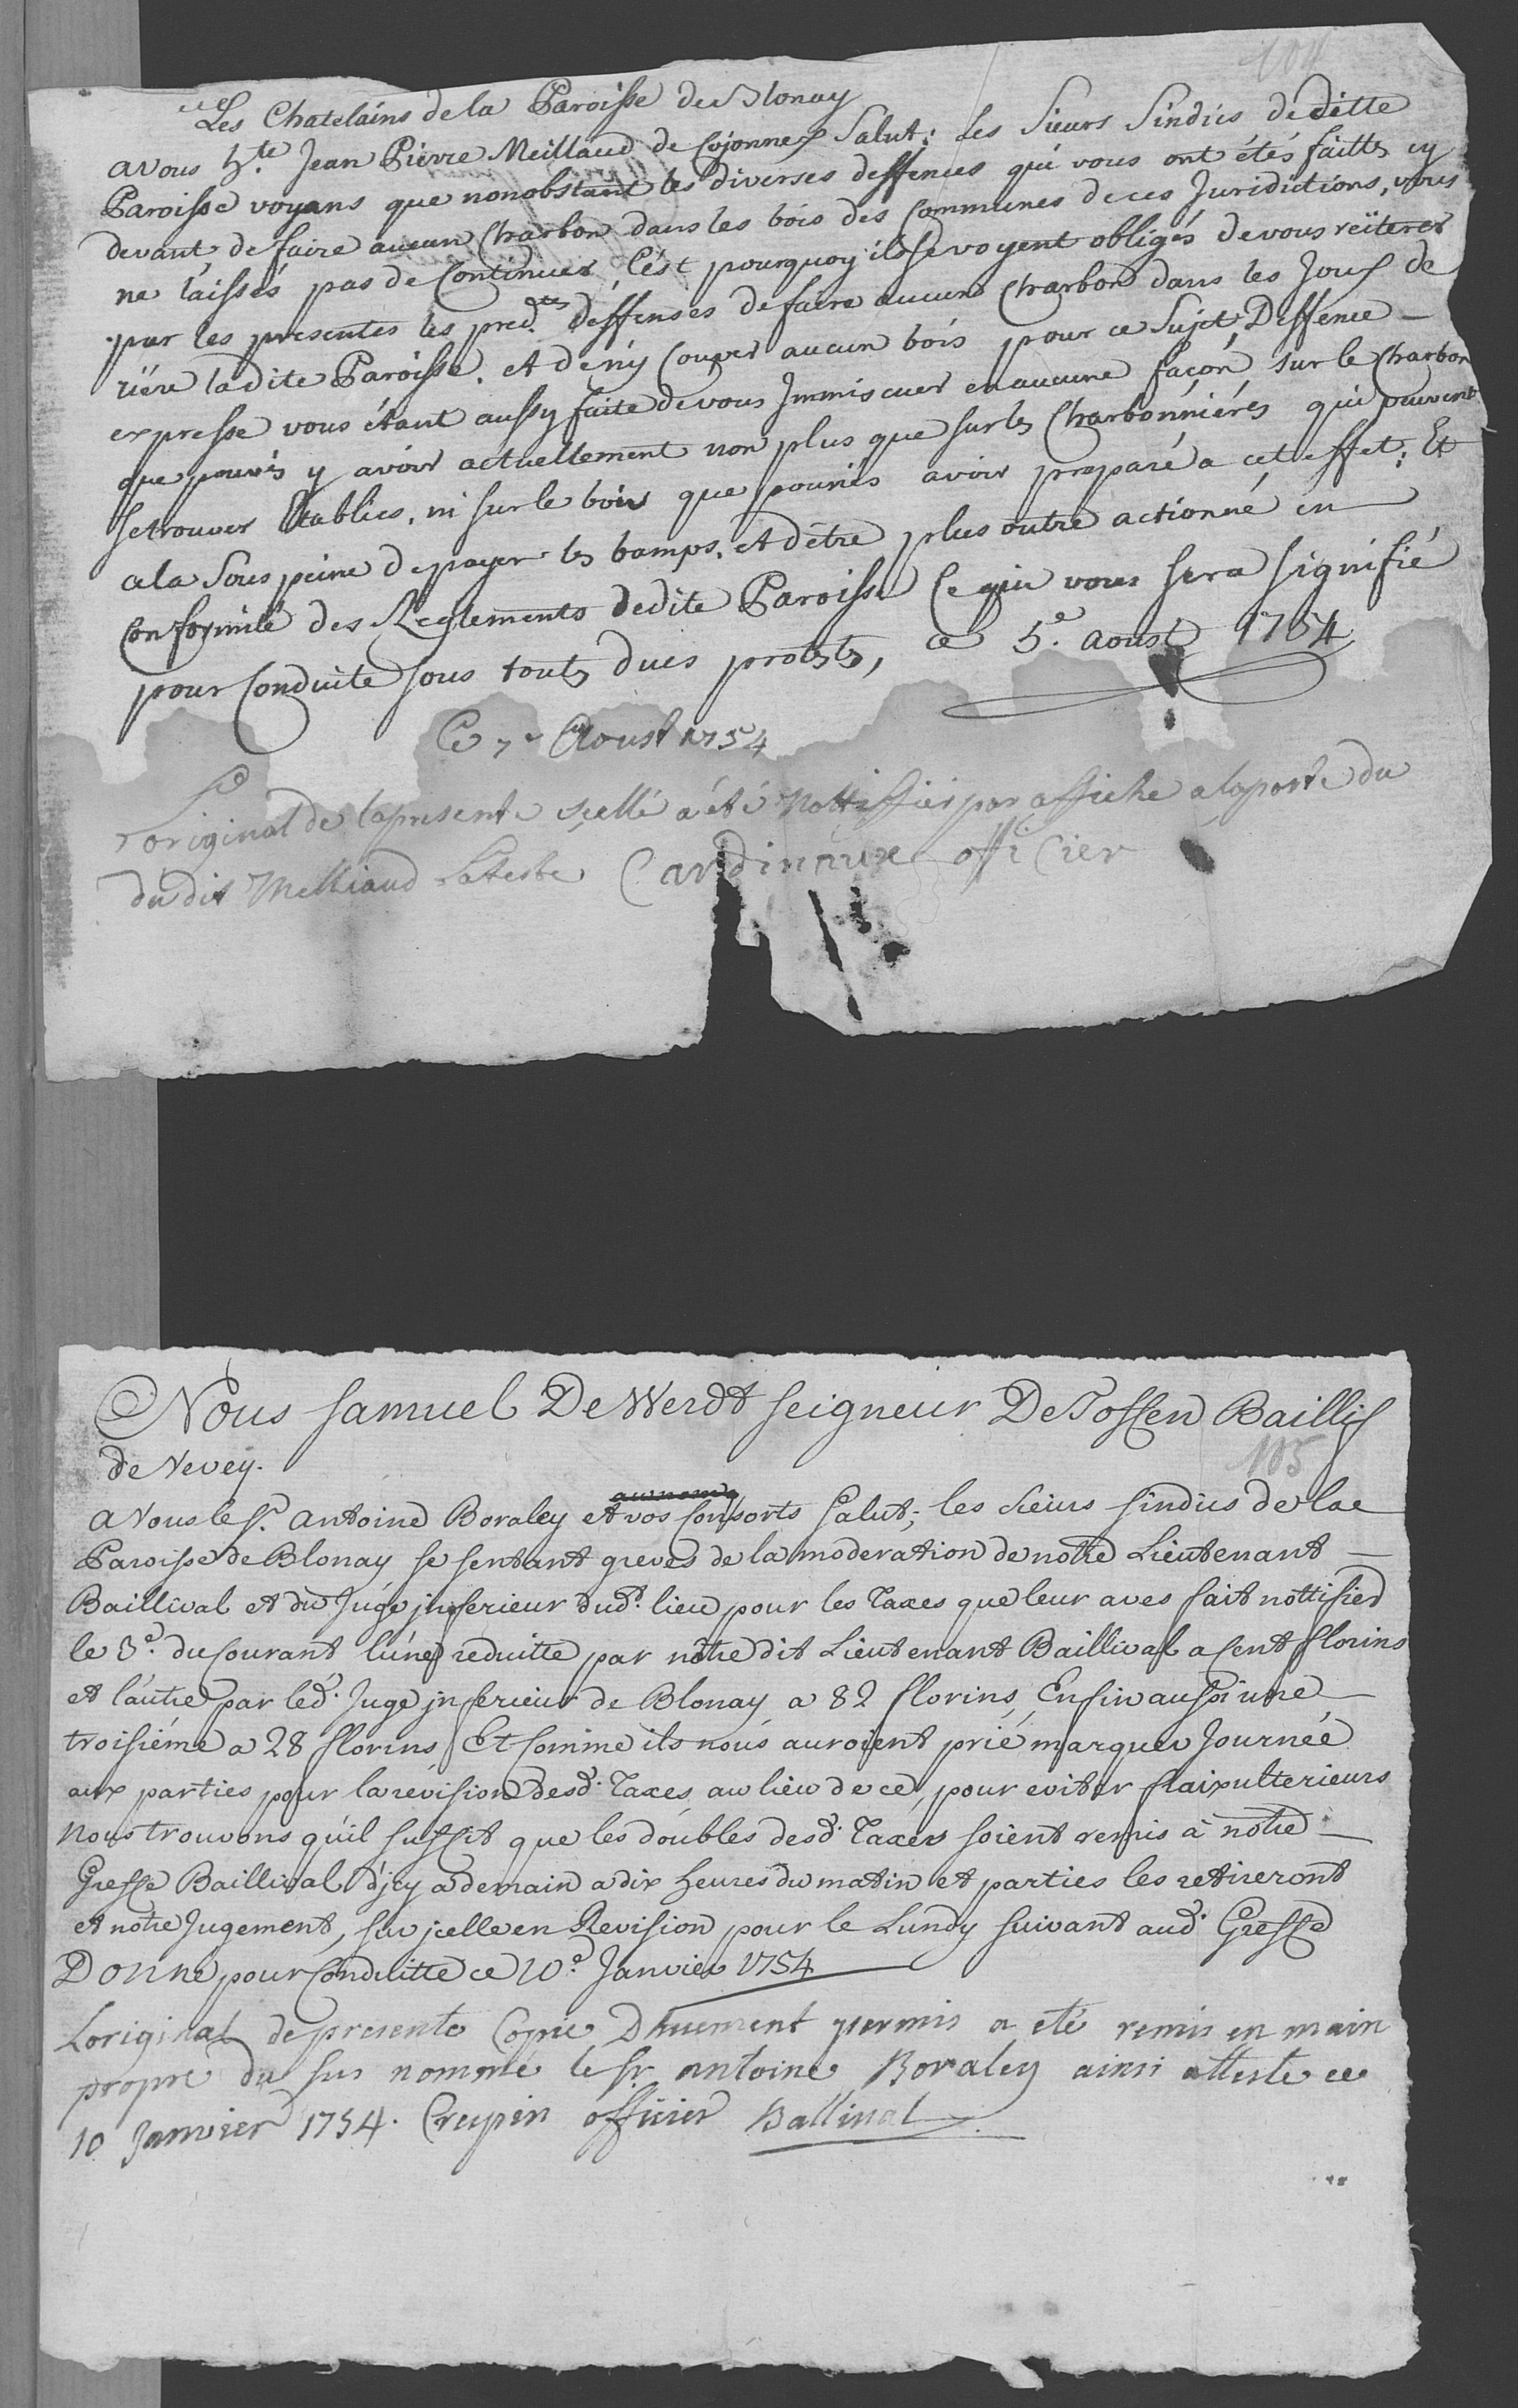 104
Les Chatelains de la Paroisse de Blonay
a vous h.te Jean Pierre Meillaud de Cojonnex Salut; les Sieurs Sindics de ditte
Paroisse voyans que nonobstant les diverses deffences qui vous ont étés faittes cy
devant de faire aucun Charbon dans les bois des Communes de ces Juridictions, vous
ne laissés pas de Continuer, C'ést pourquoy ils se voyent obligés de vous réïterer
par les presentes les pred.tes deffenses de faire aucuns Charbons dans les Joux de
riére ladite Paroisse. et de n'y Couper aucun bois pour ce Sujet, Deffence
expresse vous étant aussy faite de vous Immiscuer en aucune façon sur le Charbon
que pouriés y avoir actuellement non plus que sur les Charbonniéres qui peuvent
se trouver Etablies, ni sur le bois que pouriés avoir preparé a cet effet; Et
a la Sous peine de payer les bamps, et d'être plus outre actionné en
Conformité des Reglements de dite Paroisse Ce qui vous sera signifié
pour Conduite sous toutes dues protestes, ce 5.e aoust 1754
Ce 7e Aoust 1754
L'original de la presente scellé a été Nottiffier par affiche a la porte du
du dit Melliaud l'atteste Cardinaux officier
Nous Samuel De Werdt Seigneur De Toffen Baillif
de Vevey.
105
au nom de
A Vous le S.r Antoine Boraley et vos Consorts Salut; les Sieurs Sindics de la
Paroisse de Blonay se sentant grevés de la moderation de notre Lieutenant
Baillival et du Juge inferieur dud.t lieu pour les Taxes que leur aves fait nottifier
le 3.e du Courant l'une reduitte par nôtre dit Lieutenant Baillival a Cent florins
et l'autre par led.t Juge inferieur de Blonay a 82 florins, Enfin aussi une
troisiéme a 28 florins Et Comme ils nous auroient prié marquer Journée
aux parties pour la revision desd.t Taxes, au lieu de ce, pour eviter fraix ulterieurs
Nous trouvons qu'il suffit que les doubles desd.t Taxes soient remis à notre
Greffe Baillival d'icy a demain a dix heures du matin et parties les retireront
et notre Jugement, sur icelle en Revision pour le Lundy suivant aud.t Greffe
Donné pour Conduitte ce 10.e Janvier 1754
L'original de presente Copie Dhuement permis a eté remis en main
propre du sus nommé le Sr. Antoine Boraley ainsi atteste ce
10 Janvier 1754. Crespin officier Ballival